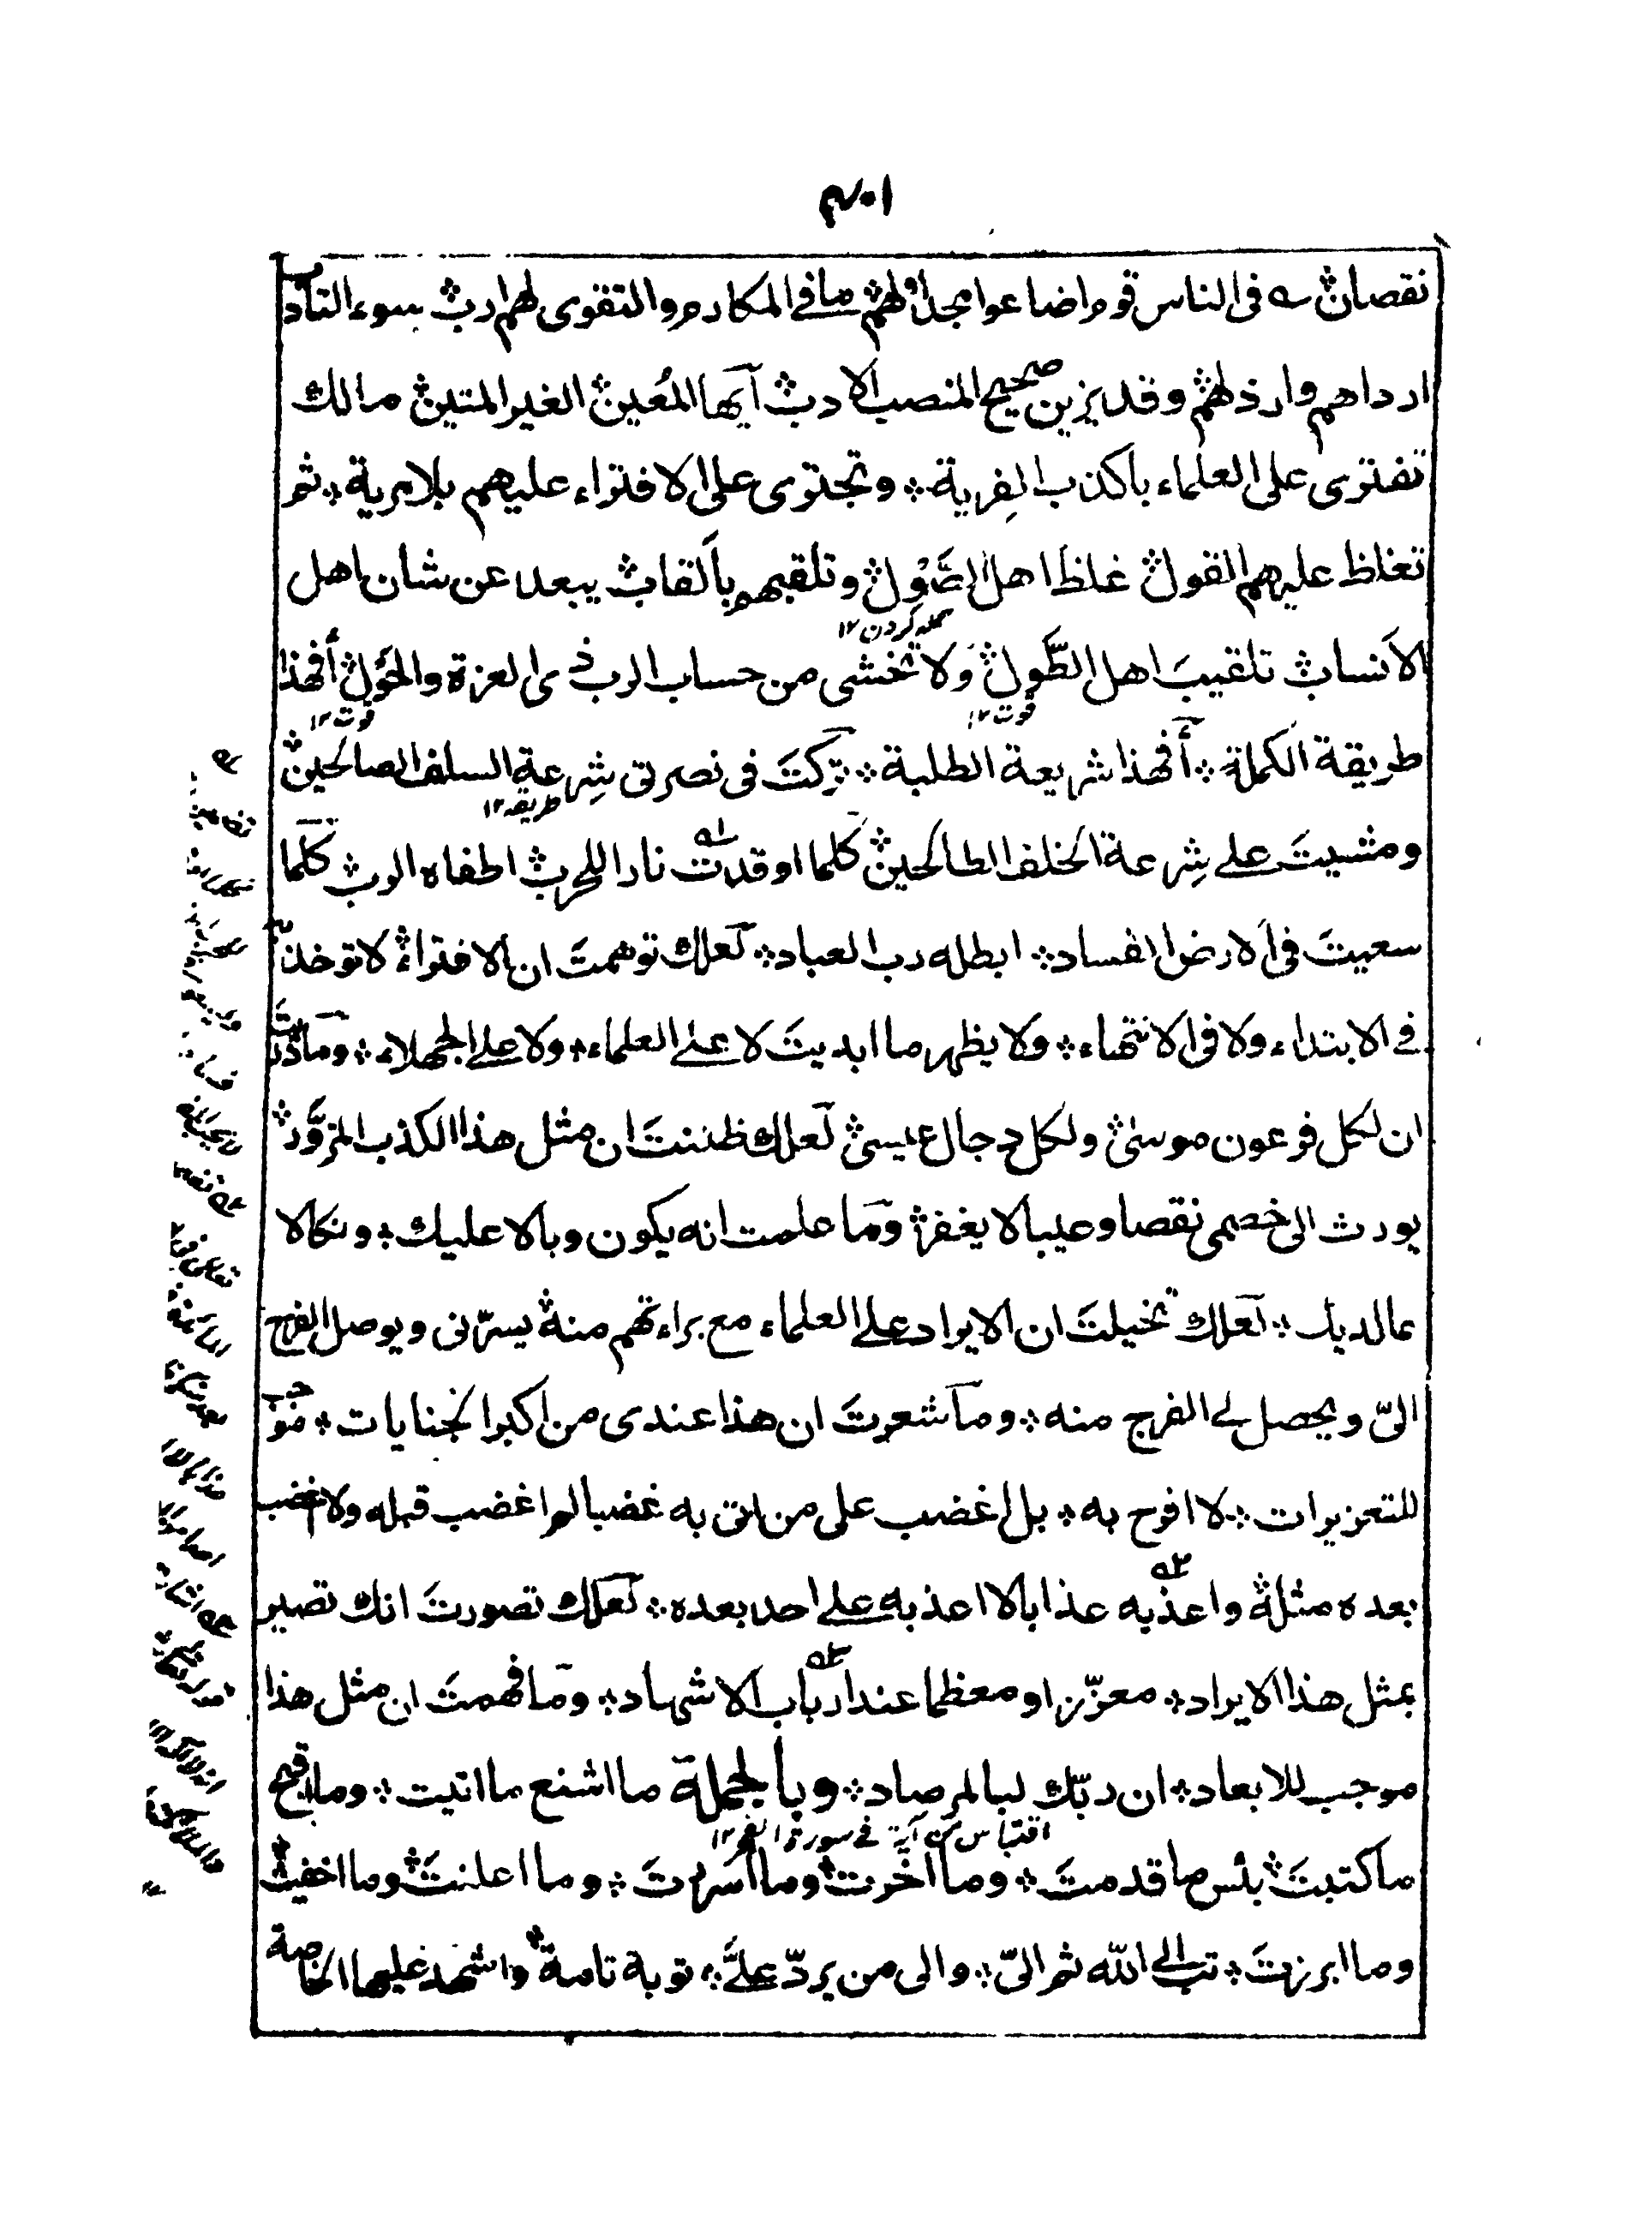 ١٠٤
نقصان؞ ؎ فى الناس قوم اضاعوا مجد اولهم؞ ما فے المكارم والتقوى لهم ارب؞ بسوء التادب
ارداهم وارذلهم؞ وقد يزين صحيح المنصب الادب؞ اَيها المُعين؞ الغير المتين؞ مالك
تفترى على العلماء باكذب الفِرية؞ وتجترى على الافتراء عليهم بلا مرية؞ ثم
تغلظ عليهم القول؞ غلظَ اهل الصَّوْل؞ وتلقبهم بالقاب؞ يبعد عن شان اهل
حمله كردن ١٢
الانساب؞ تلقيبَ اهل الطَّول؞ وَلا تخشى من حساب الرب ذى العزة والحَول؞ أفهذا
قوت ١٢
قوت ١٢
طريقة الكملة؞ أفهذا شريعة الطلبة؞ تركتَ فى نصرتى شِرعة السلف الصالحين؞
طريقه ١٢
ومشيتَ علے شِرعة الخلف الطالحين؞ كلما اوقدت نارا للحرب؞ اطفاه الرب؞ كلما
سعيتَ فى الارض الفساد؞ ابطله رب العباد؞ لعلك توهمتَ ان الافتراء؞ لا توخذ به
فے الابتداء، ولا فى الانتهاء؞ ولا يظهر ما ابديتَ لا علے العلماء؞ ولا علے الجهلاء؞ وما دريتَ
ان لكل فرعون موسىٰ؞ ولكل دجال عيسىٰ؞ لعلك ظننتَ ان مثل هذا الكذب المزوَّر؞
يورث الى خصمى نقصا وعيبا لا يغفر؞ وما علمت انه يكون وبالا عليك؞ ونكالا
عالديك؞ لعلك تخيلتَ ان الايراد علے العلماء مع براءتهم منه؞ يسرّنى ويوصل الفرح
الىّ ويحصل لے الفرج منه؞ وما شعرتَ ان هذا عندى من اكبر الجنايات؞ موجب
للتعزيرات؞ لا افرح به؞ بل اغضب على من اتى به غضبا لم اغضب قبله ولا اغضب
بعده مثله؞ واعذبه عذابا لا اعذبه علے احد بعده؞ لعلك تصورتَ انك تصير
بمثل هذا الايراد؞ معزّزا ومعظما عند ارباب الاشهاد؞ وما فهمتَ ان مثل هذا
موجب للابعاد؞ ان ربّك لبالمرصاد؞ وبالجملة ما اشنع ما اتيت؞ وما اقبح
اقتباس من آية فے سورة الفجر ١٢
ما كتبتَ؞ بئس ما قدمتَ؞ وما اخّرت؞ وما اسررتَ؞ وما اعلنتَ؞ وما اخفيتَ؞
وما ابرزتَ؞ تب الے الله ثم الىّ؞ والى من يردّ علىَّ؞ توبة تامة؞ واشهد عليها الخاصة